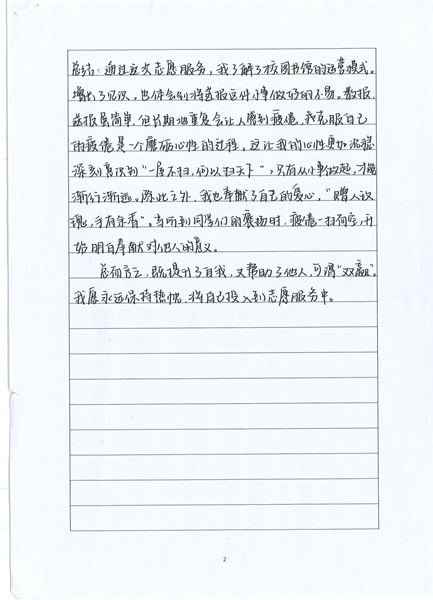 总结：通过这次志愿服务，我了解了校图书馆的运营模式。
增长了见识，也体会到将送报这件小事做好的不易。数报、
送报虽简单，但长期地重复会让人感到疲倦，我克服自己
的疲倦是一个磨砺心性的过程。这让我的心性更加沉稳
深刻意识到"一屋不扫，何以扫天下"，只有从小事做起，才能
渐行渐远。除此之外，我也奉献了自己的爱心，"赠人玫
瑰，手有余香"。当听到同学们的褒扬时，疲倦一扫而空，开
始明白奉献对他人的意义。
总而言之，既提升了自我，又帮助了他人，可谓"双赢"。
我愿永远保持热忱，将自己投入到志愿服务中。
2